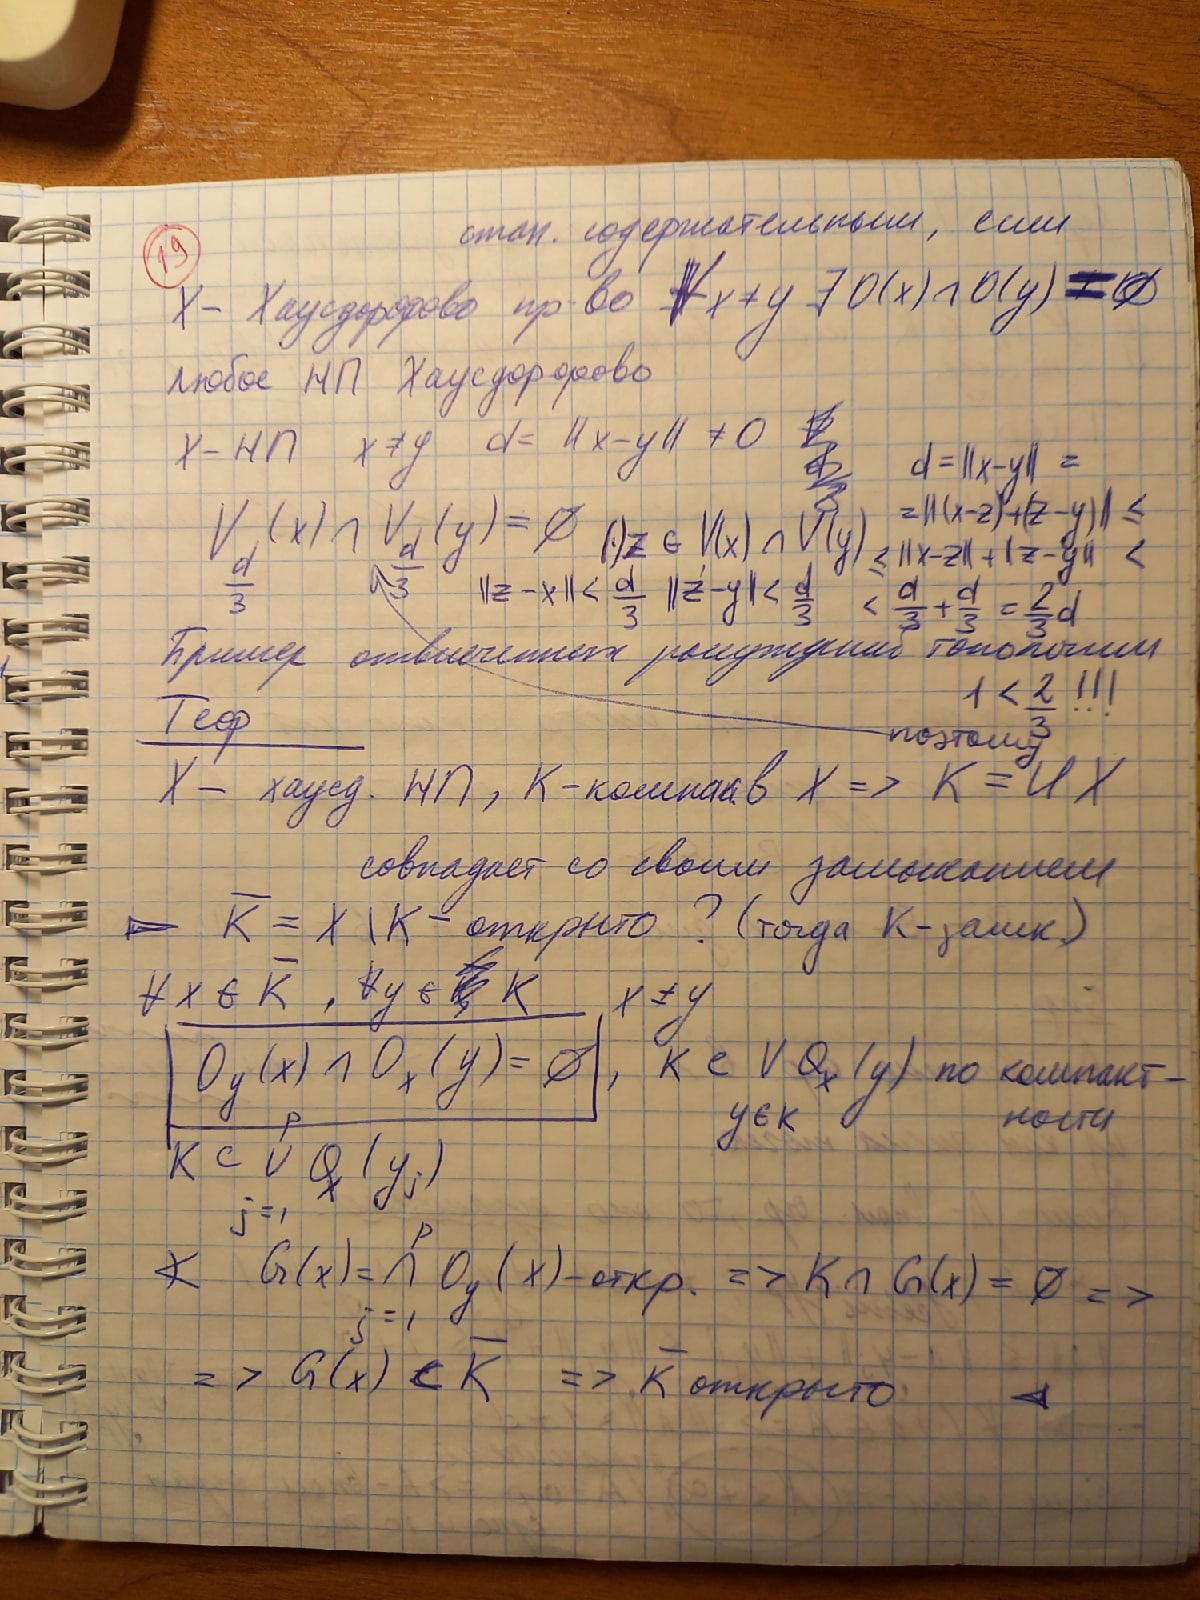 19
стан. содержательным, если
X – Хаусдорфово пр-во ∀x≠y ∃O(x)∩O(y)=∅
любое НП Хаусдорфово
X – НП x≠y d=||x-y||≠0
d=||x-y||=
=||(x-z)+(z-y)||≤
V_{d/3}(x)∩V_{d/3}(y)=∅ (·)z∈V(x)∩V(y)
≤||x-z||+||z-y||<
||z-x||<d/3 ||z-y||<d/3
<d/3+d/3=2/3d
Пример отвлеченных рассуждений топологии
1<2/3!!!
поэтому
Теор
X – хаусд. НП, K-компакт в X => K = X
совпадает со своим замыканием
▻ K̄ = X\K – открыто? (тогда K-замк.)
∀x∈K̄, ∀y∈K x≠y
O_y(x)∩O_x(y)=∅, K⊂∪_{y∈K} O_x(y) по компакт-
ности
K⊂∪_{j=1}^{p} O_x(y_j)
G(x)=∩_{j=1}^{p} O_y(x)-откр. => K∩G(x)=∅ =>
=> G(x)⊂K̄ => K̄ открыто ◅